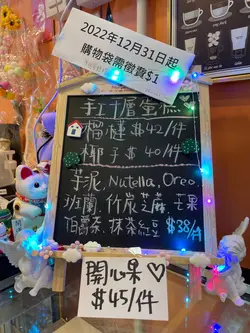 2022年12月31日起
購物袋需徵費$1
手工千層蛋糕
榴槤 $42/件
椰子 $40/件
芋泥, Nutella, Oreo,
班蘭, 竹炭芝蔴, 芒果
伯爵茶, 抹茶紅豆 $38/件
開心果♡
$45/件